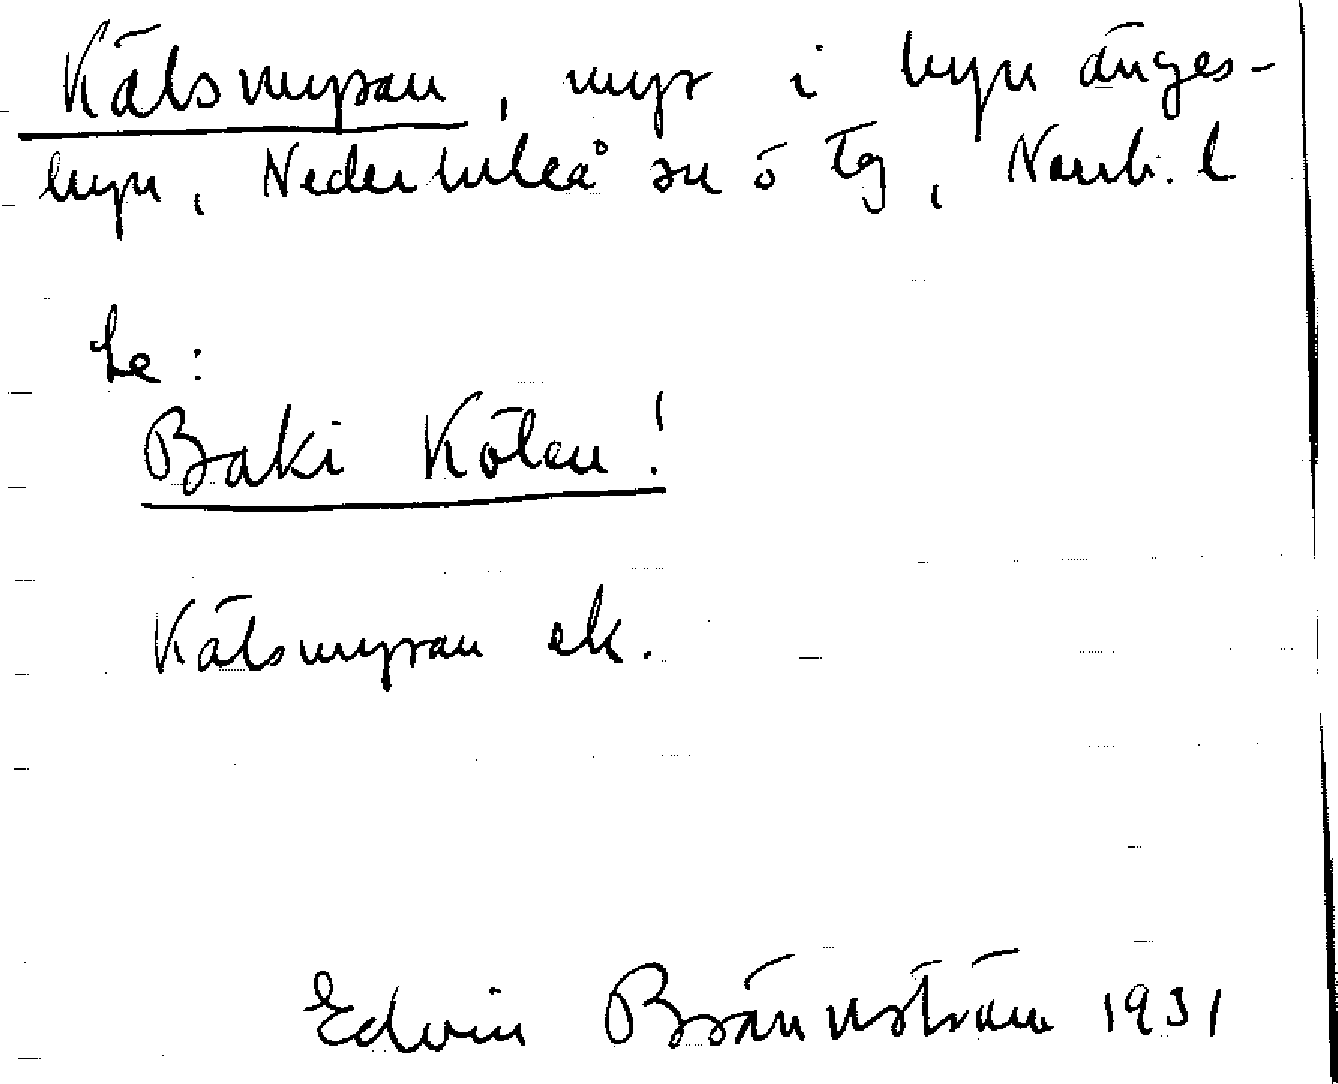 Kälsmyran, myr i byn Änges-
byn, Nederluleå sn o tg, Norrb. l
Se:
Baki Kölen!
Kälsmyran ek.
Edvin Brännström 1931